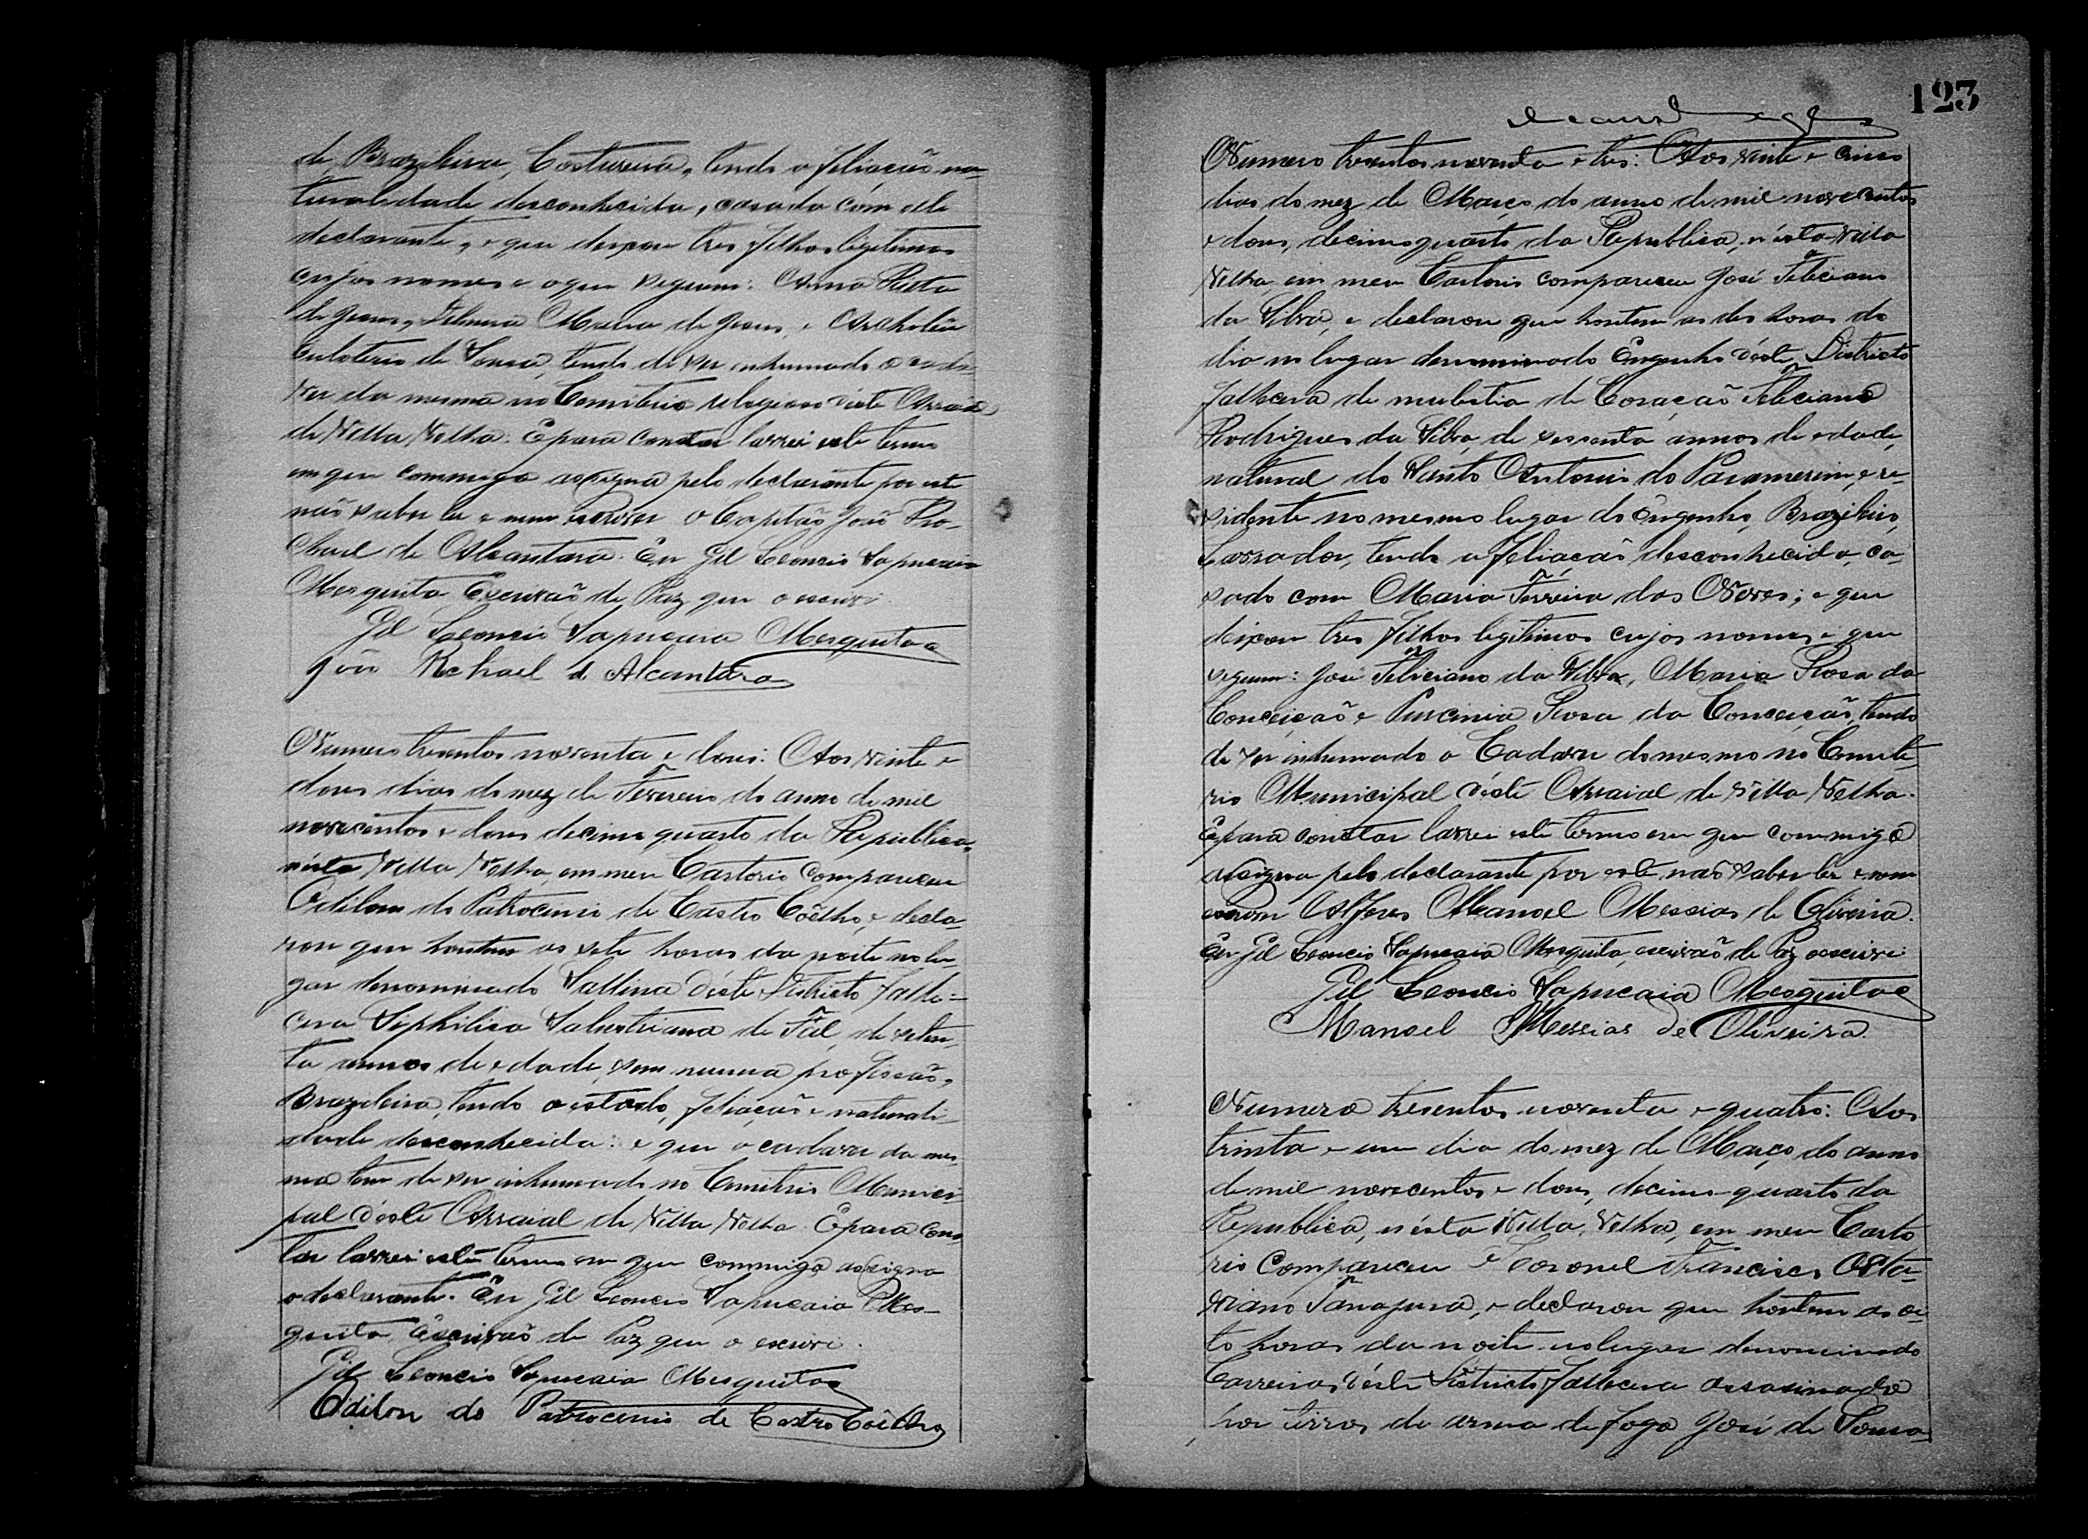 de, Brazileira, Costureira, tendo a feliação na-
turalidade desconhecida, casada com elle
declarante, e que deixou tres filhos legitimos
cujos nomes e o que seguem: Anna Rita
de Jesus, Maria de Jesus, e
de Souza, tendo de ser inhumado o cada-
ver da mesma no Cemiterio religioso d'este Arraial
de Villa Velha. E para constar lavrei este termo
em que commigo assigna pelo declarante por este
não saber ler e nem escrever o Capitão João Ra-
chael de Alcantara. Eu Gil Leoncio Sapucaia
Mesquita Escrivão de Paz que o escrevi.
Gil Leoncio Sapucaia Mesquita
João Rachael de Alcantara
Numero tresentos noventa e dous: Aos vinte e
dous dias do mez de Fevereiro do anno de mil
novecentos e dous decimo quarto da Republica,
n'esta Villa Velha, em meu Cartorio compareceu
Odilon do Patrocinio de Castro Coêlho, e decla-
rou que hontem as sete horas da noite no lu-
gar denominado Sallina d'este Districto, falle-
cera Siphilica Salustiana de Tal, de seten-
ta annos de edade, sem nenuma profissão,
Brazileira, tendo o estado, feliação e naturali-
dade desconhecida: e que o cadaver da mes-
ma tem de ser inhumado no Cemiterio Munici-
pal d'este Arraial de Villa Velha. E para cons-
tar lavrei este termo em que commigo assigna
o declarante. Eu Gil Leoncio Sapucaia Mes-
quita, Escrivão de Paz que o escrevi.
Gil Leoncio Sapucaia Mesquita
Odilon do Patrocinio de Castro Coêlho
123
Numero tresentos noventa e tres: Aos vinte e cinco
dias do mez de Março do anno de mil novecentos
e dous, decimo quarto da Republica, n'esta Villa
Velha, em meu Cartorio compareceu José Feliciano
da Silva, e declarou que hontem as des horas do
dia no lugar denominado Engenho d'este Districto
fallecera de mulestia de Coração Feliciano
Rodrigues da Silva, de sessenta annos de edade,
natural do Santo Antonio do Paramerim, e re-
sidente no mesmo lugar do Engenho, Brazileiro,
Lavrador, tendo a feliação desconhecida, ca-
sado com Maria Ferreira das Neves; e que
deixou tres filhos legitimos cujos nomes e que
seguem: José Feliciano da Silva, Maria Rosa da
Conceição e Purcinia Rosa da Conceição, tendo
de ser inhumado o Cadaver do mesmo no Cemite-
rio Municipal d'este Arraial de Villa Velha.
E para constar lavrei este termo em que commigo
assigna pelo declarante por este não saber ler e nem
escrever Alferes Manoel Messias de Oliveira.
Eu Gil Leoncio Sapucaia Mesquita, escrivão de Paz o escrevi
Gil Leoncio Sapucaia Mesquita
Manoel Messias de Oliveira.
Numero tresentos noventa e quatro: Aos
trinta e um dia do mez de Março do anno
de mil novecentos e dous, decimo quarto da
Republica, n'esta Villa Velha, em meu Carto
rio compareceu o Coronel Francisco Octa-
viano Tanajura, e declarou que hontem as oi-
to horas da noite no lugar denominado
Carreiras d'este Districto fallecera assasinado
por tirros de arma de fogo José de Souza